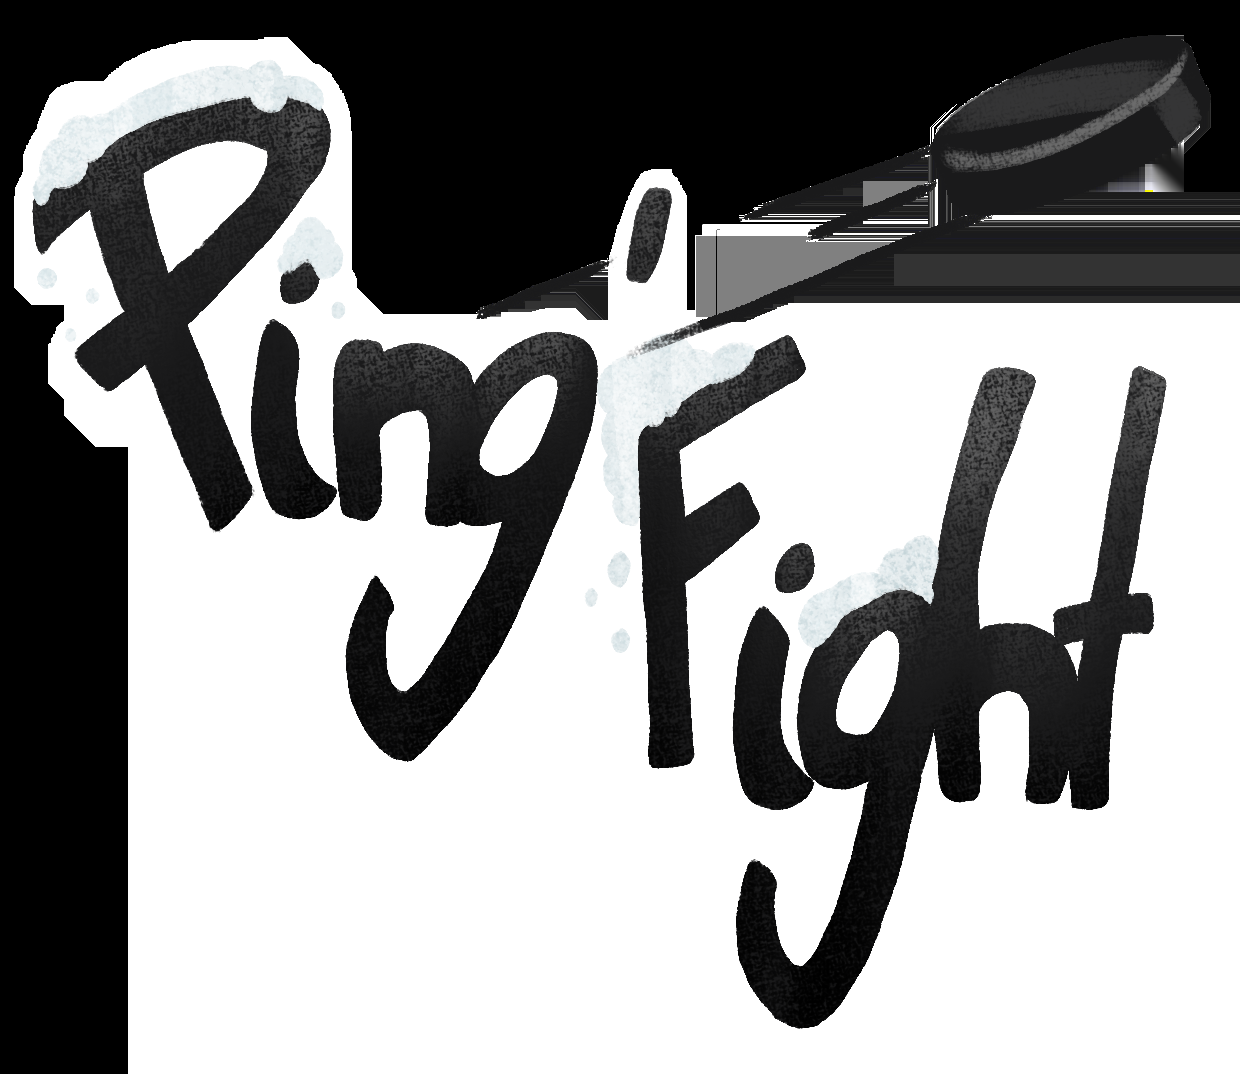 Ping'
Fight